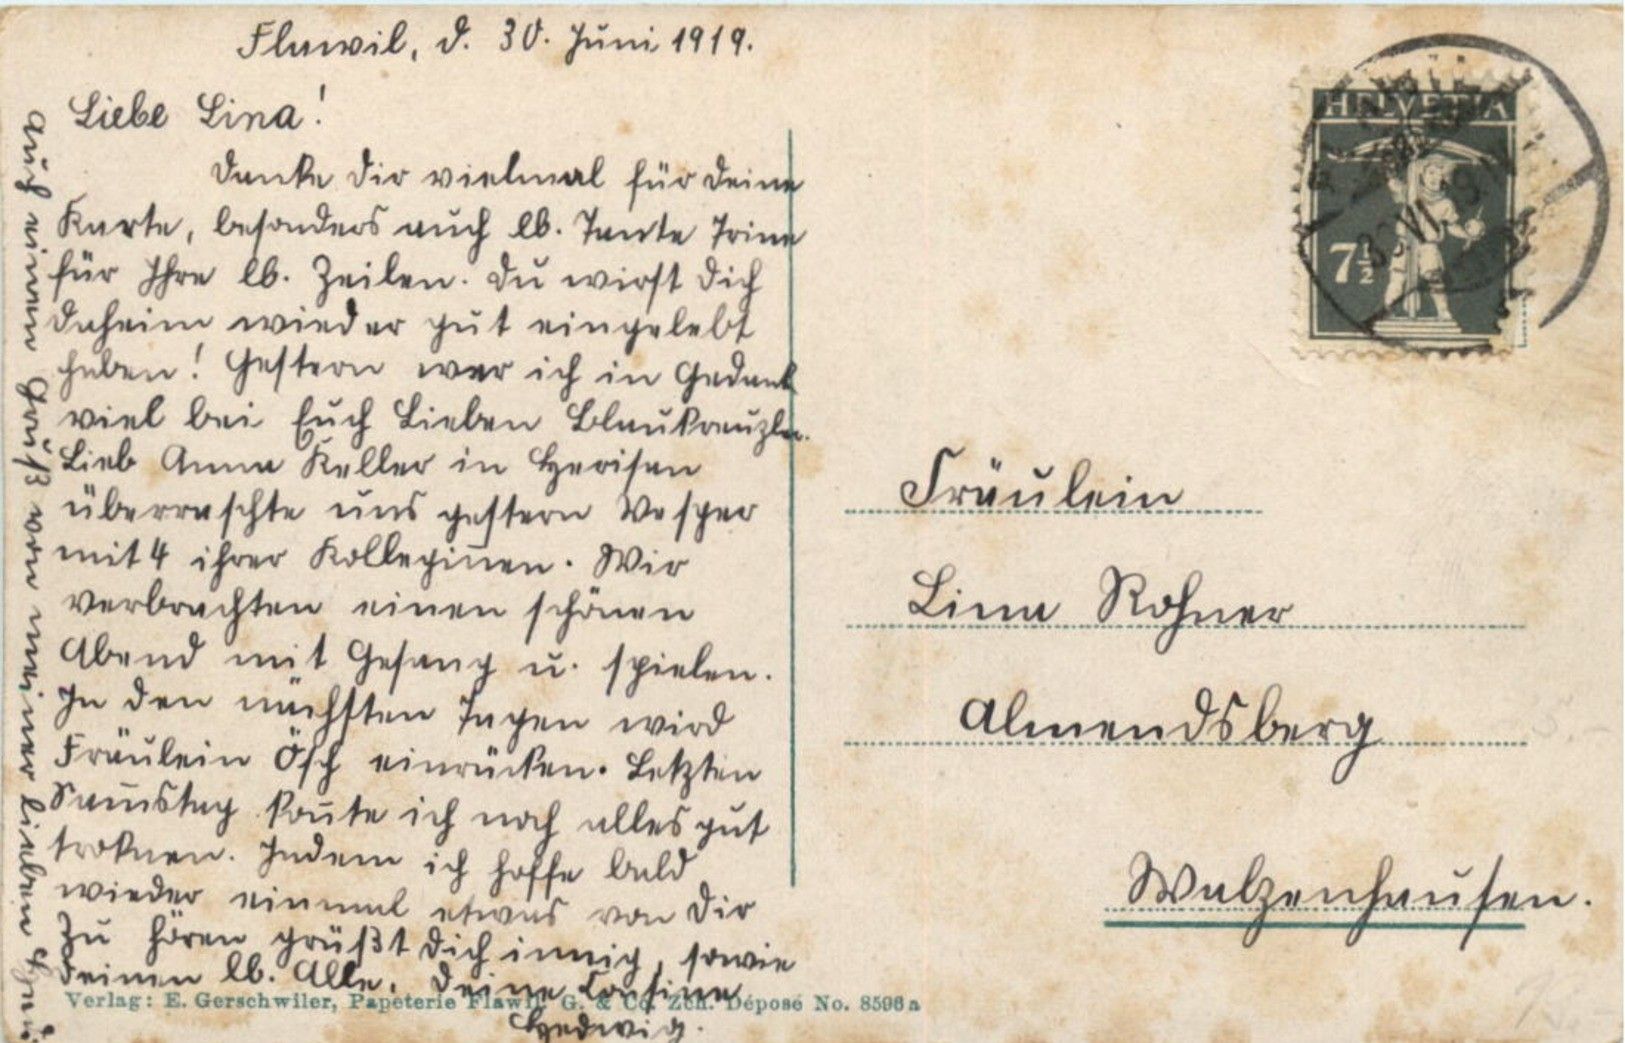 Flawil, d. 30. Juni 1919.
Liebe Lina!
Danke Dir vielmal für Deine
Karte, besonders auch lb. Tante Trine
für Ihre lb. Zeilen. Du wirst Dich
daheim wieder gut eingelebt
haben! Gestern war ich in Gedank
viel bei Euch Lieben Blaukreuzler.
Lieb Anna Keller in Herisau
überraschte uns gestern Vesper
mit 4 ihrer Kolleginen. Wir
verbrachten einen schönen
Abend mit Gesang u. spielen.
In den nächsten Tagen wird
Fräulein Ösch einrücken. Letzten
Samstag konte ich noch alles gut
troknen. Indem ich hoffe bald
wieder einmal etwas von Dir
zu hören grüßt Dich innig, sowie
Deinen lb. Alle, Deine Cousine
Hedwig.
Auch einen Gruß von meiner lieben
Verlag: E. Gerschwiler, Papeterie Flawil G. & Co. Zch. Déposé No. 8596a
HELVETIA
7½
VI. 19
Fräulein
Lina Rohner
Almendsberg
Walzenhausen.